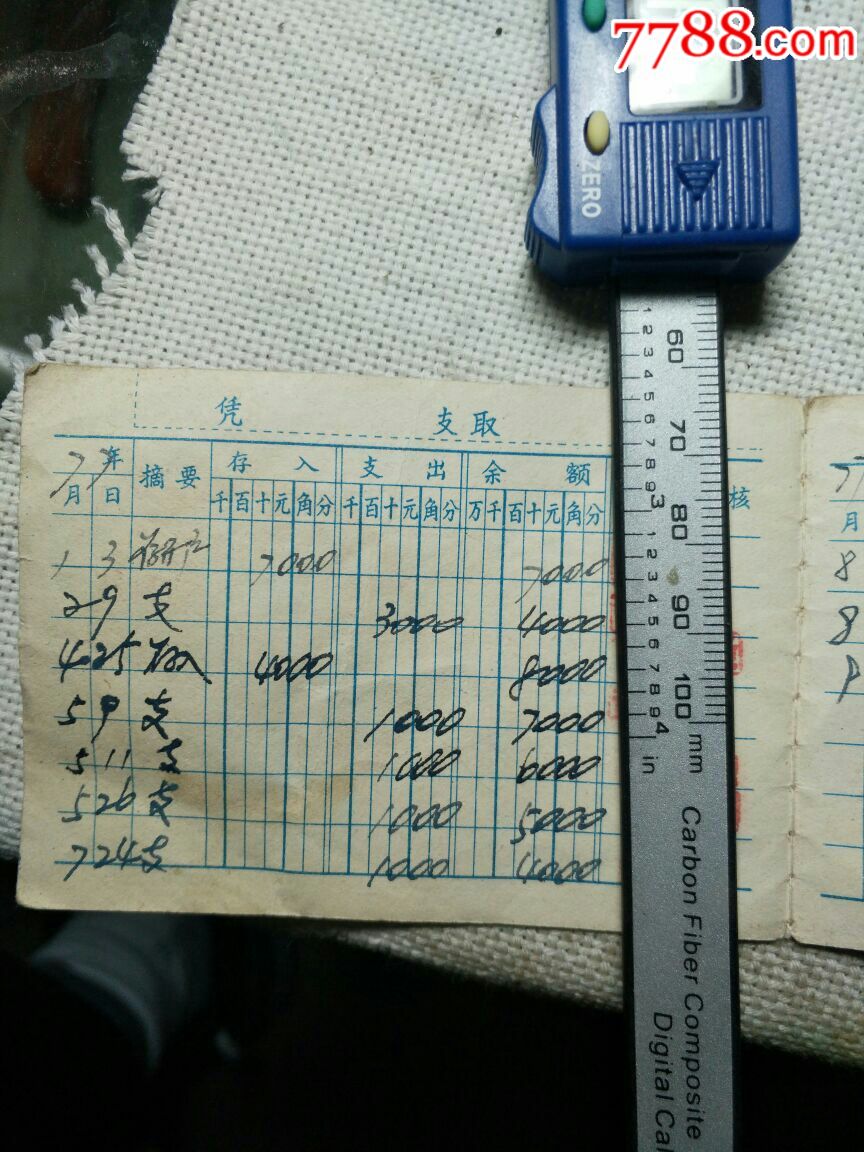 7788.com
ZERO
凭 支取
77年 摘要 存入 支出 余额 核
月 日 千百十元角分 千百十元角分 万千百十元角分
1 3 7000 7000
2 9 支 3000 4000
4 25 存入 4000 8000
5 9 支 1000 7000
5 11 支 1000 6000
5 26 支 1000 5000
7 24 支 1000 4000
77
月
8
8
60 70 80 90 100 mm
1 2 3 4 5 6 7 8 9 3 1 2 3 4 5 6 7 8 9 4 in
Carbon Fiber Composite
Digital Ca